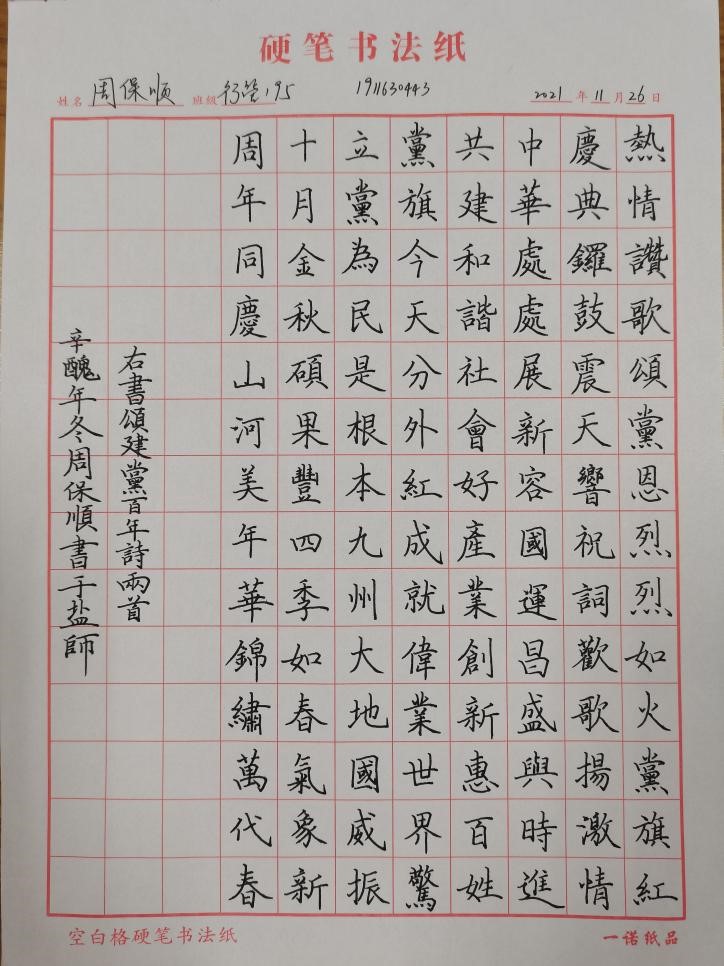 硬笔书法纸
姓名 周保顺 班级 行管195 1911630443 2021 年 11 月 26 日
熱情讚歌頌黨恩烈烈如火黨旗紅
慶典鑼鼓震天響祝詞歡歌揚激情
中華處處展新容國運昌盛與時進
共建和諧社會好產業創新惠百姓
黨旗今天分外紅成就偉業世界驚
立黨為民是根本九州大地國威振
十月金秋碩果豐四季如春氣象新
周年同慶山河美年華錦繡萬代春
右書頌建黨百年詩兩首
辛醜年冬周保順書于盐師
空白格硬笔书法纸
一诺纸品